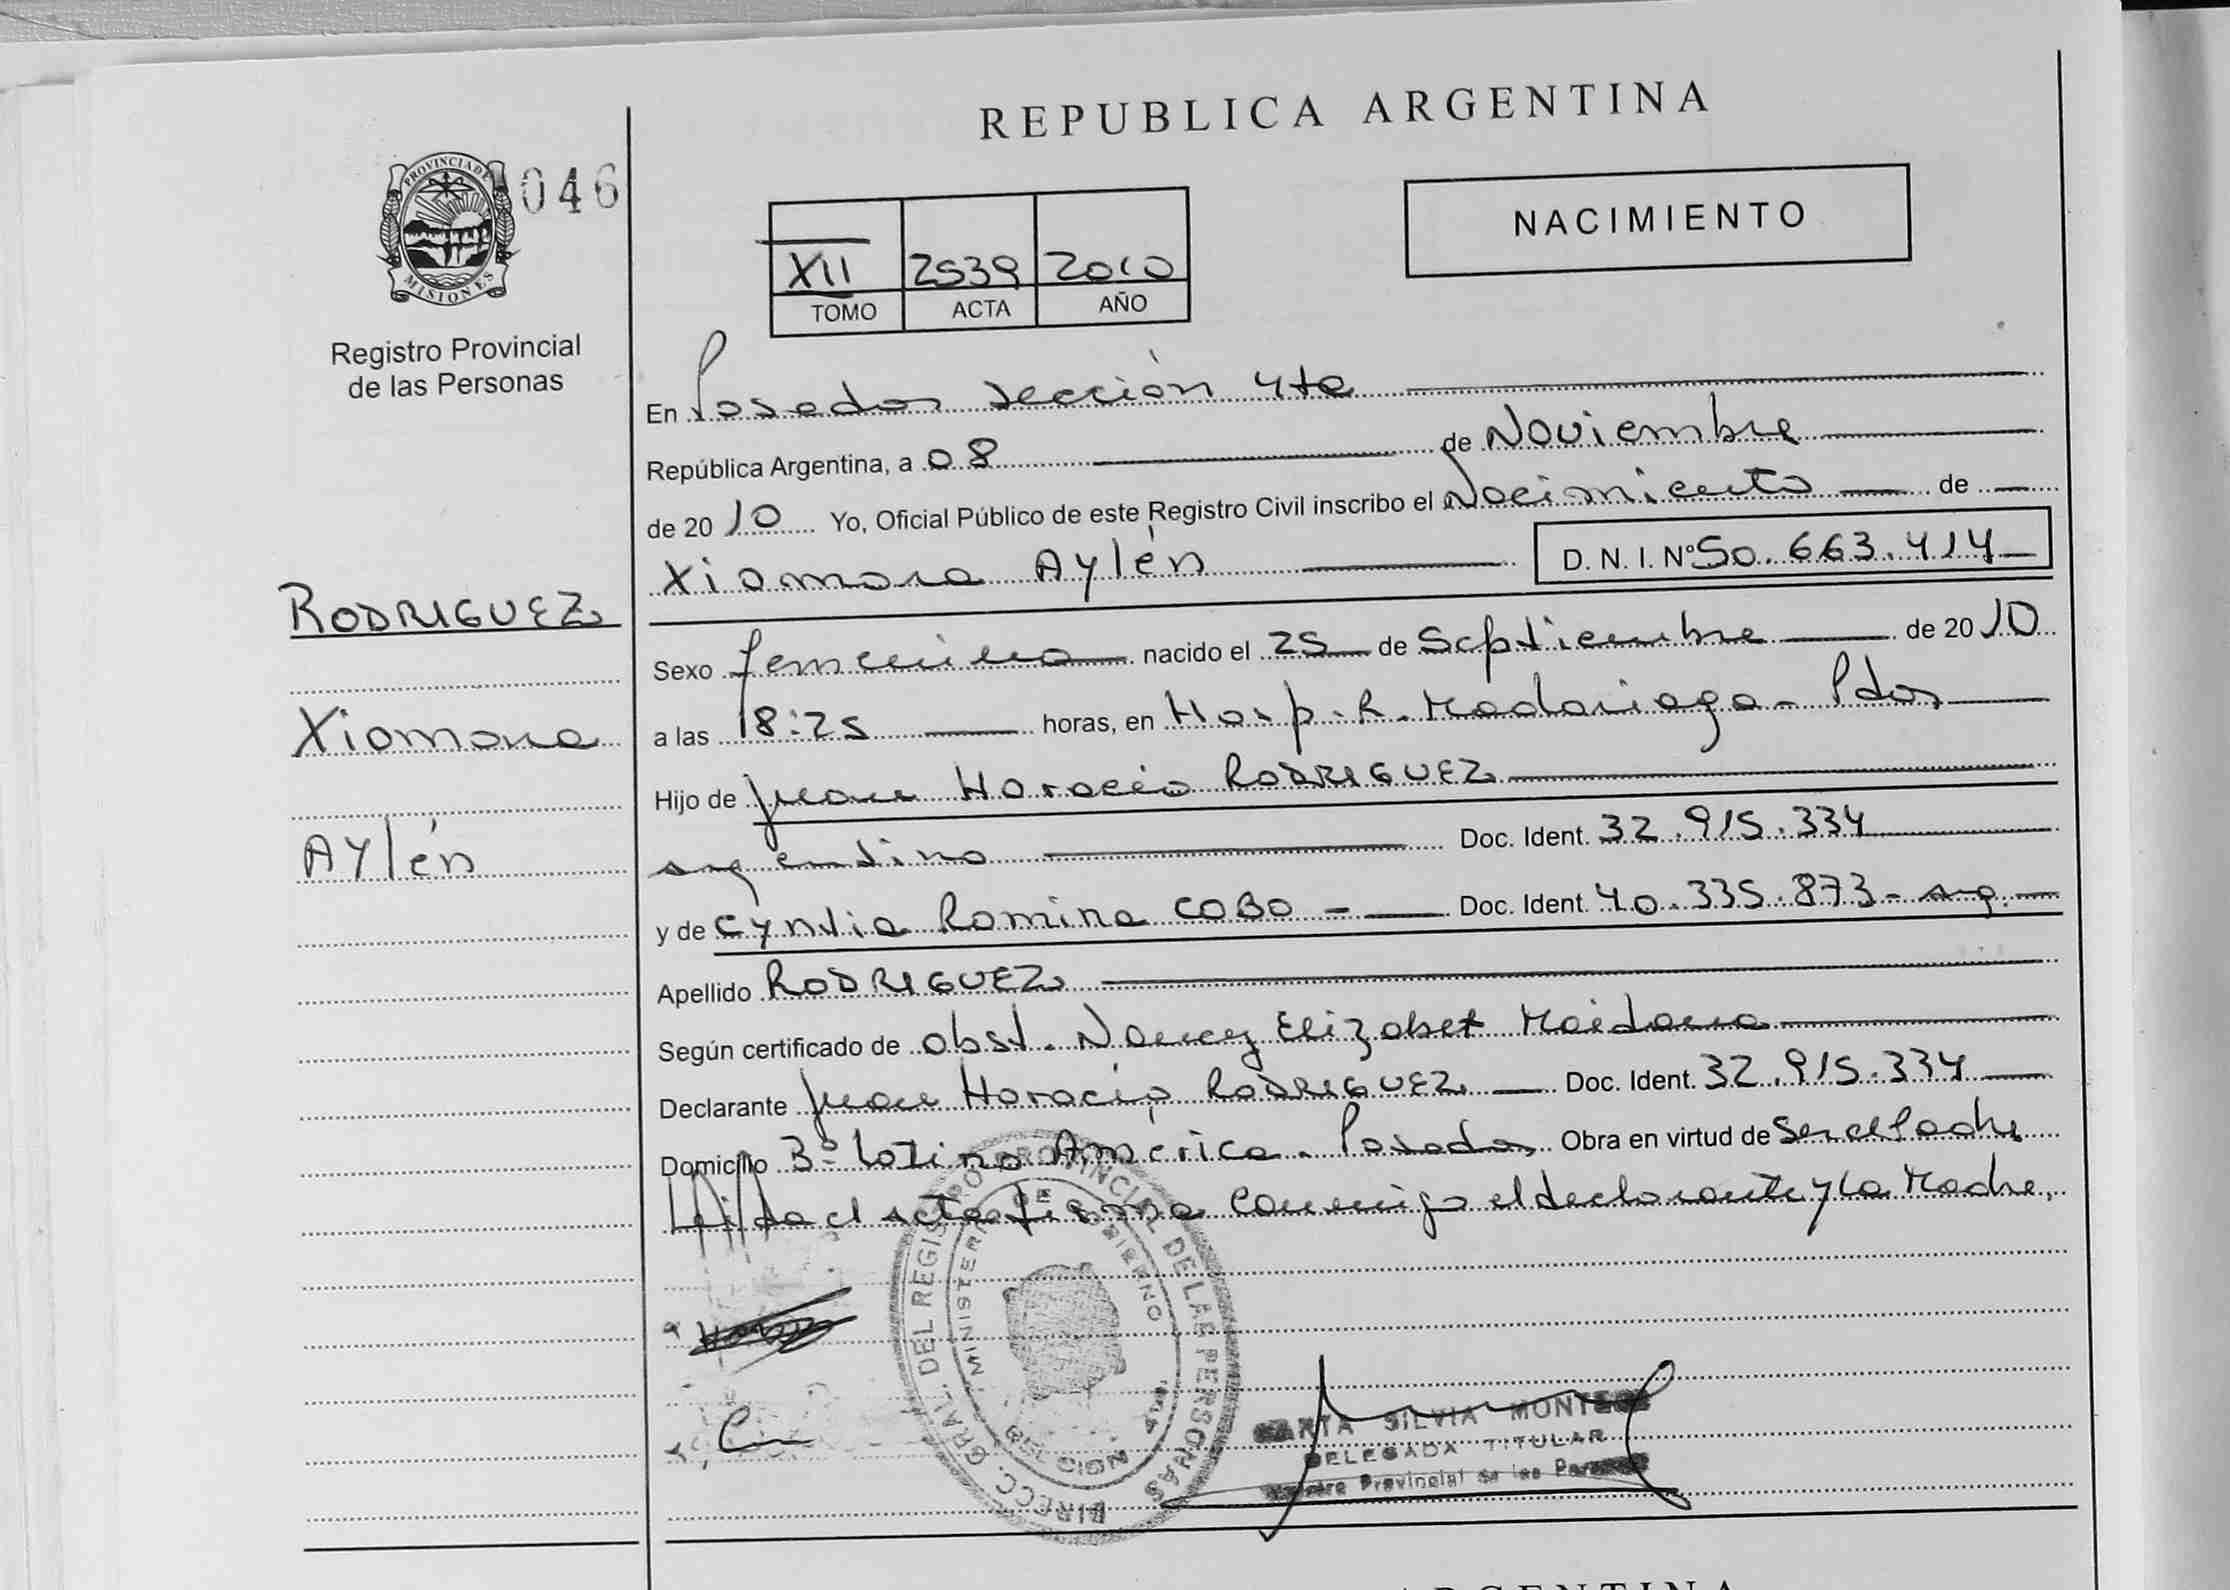 REPUBLICA ARGENTINA
PROVINCIA DE
MISIONES
046
Registro Provincial
de las Personas
NACIMIENTO
XII 2539 2010
TOMO ACTA AÑO
En Posadas sección 4ta
República Argentina, a 08 de Noviembre
de 2010 Yo, Oficial Público de este Registro Civil inscribo el Nacimiento de
Xiomara Aylén D. N. I. Nº 50.663.414
RODRIGUEZ
Xiomara
Aylén
Sexo femenino nacido el 25 de Septiembre de 2010
a las 18:25 horas, en Hosp. R. Madariaga - Pdas
Hijo de Juan Horacio RODRIGUEZ
argentino Doc. Ident. 32.915.334
y de Cyntia Romina COBO - Doc. Ident. 40.335.873 - arg.
Apellido RODRIGUEZ
Según certificado de obst. Nancy Elizabet Maidana
Declarante Juan Horacio RODRIGUEZ Doc. Ident. 32.915.334
Domicilio Bº Latino América - Posadas Obra en virtud de Ser el Padre
Leída el acta firma conmigo el declarante y la Madre.
DIRECC. GRAL. DEL REGISTRO PROVINCIAL DE LAS PERSONAS
MINISTERIO DE GOBIERNO
SILVIA
DELEGADA TITULAR
Registro Provincial de las Personas
ARGENTINA